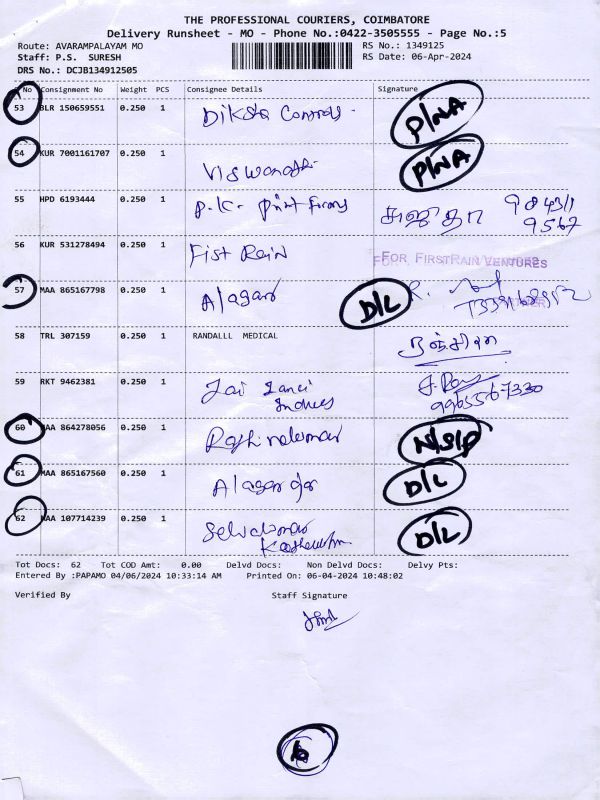 THE PROFESSIONAL COURIERS, COIMBATORE
Delivery Runsheet - MO - Phone No.:0422-3505555 - Page No.:5
Route: AVARAMPALAYAM MO RS No.: 1349125
Staff: P.S. SURESH RS Date: 06-Apr-2024
DRS No.: DCJB134912505
No Consignment No Weight PCS Consignee Details Signature
53 BLR 150659551 0.250 1 P/NA
54 KUR 7001161707 0.250 1 P/NA
55 HPD 6193444 0.250 1 P.K. Print Forms சுஜாதா 98431
9567
56 KUR 531278494 0.250 1 Fist Rain FOR FIRSTRAIN VENTURES
57 MAA 865167798 0.250 1 Alagar D/L R.
58 TRL 307159 0.250 1 RANDALLL MEDICAL
59 RKT 9462381 0.250 1 Jai
9965567330
60 MAA 864278056 0.250 1 N/S/P
61 MAA 865167560 0.250 1 D/L
62 MAA 107714239 0.250 1 Selvakumar D/L
Tot Docs: 62 Tot COD Amt: 0.00 Delvd Docs: Non Delvd Docs: Delvy Pts:
Entered By :PAPAMO 04/06/2024 10:33:14 AM Printed On: 06-04-2024 10:48:02
Verified By Staff Signature